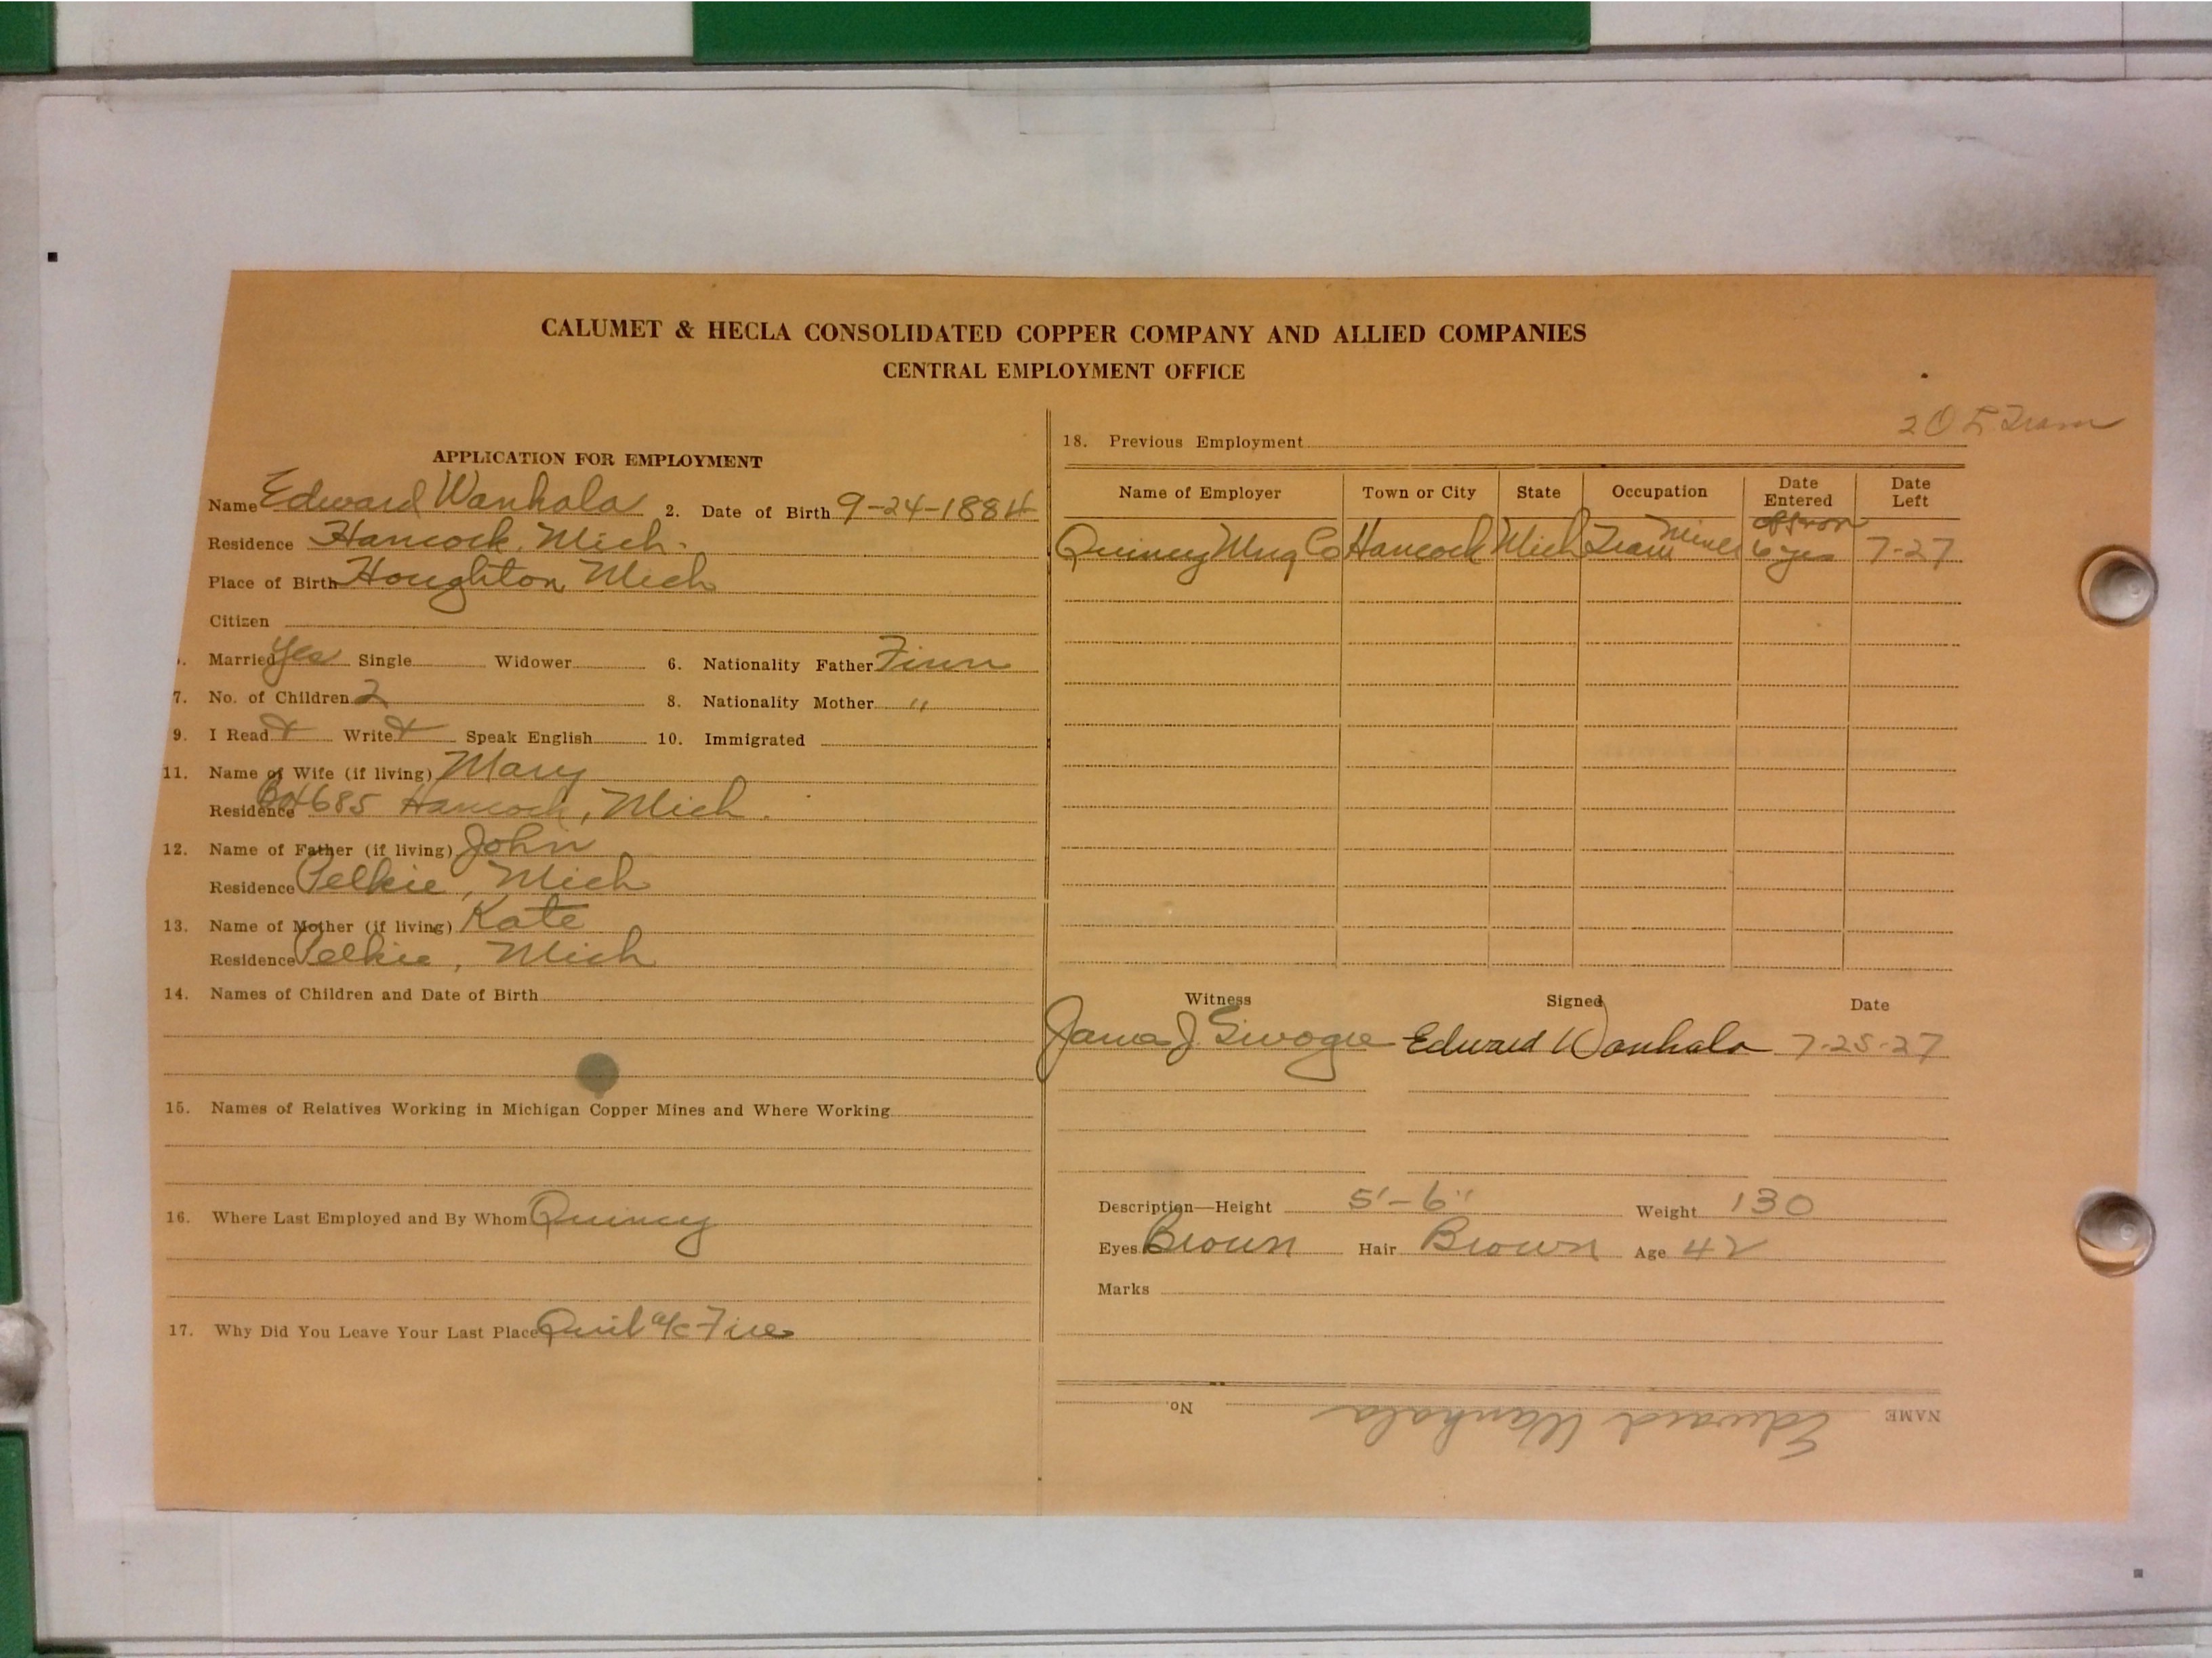 CALUMET & HECLA CONSOLIDATED COPPER COMPANY AND ALLIED COMPANIES
CENTRAL EMPLOYMENT OFFICE
APPLICATION FOR EMPLOYMENT
Name Edward Wanhala 2. Date of Birth 9-24-1884
Residence Hancock, Mich.
Place of Birth Houghton, Mich
Citizen
Married Yes Single Widower 6. Nationality Father Finn
7. No. of Children 2 8. Nationality Mother "
9. I Read Write Speak English 10. Immigrated
11. Name of Wife (if living) Mary
Residence Box 685 Hancock, Mich.
12. Name of Father (if living) John
Residence Pelkie, Mich
13. Name of Mother (if living) Kate
Residence Pelkie, Mich
14. Names of Children and Date of Birth
15. Names of Relatives Working in Michigan Copper Mines and Where Working
16. Where Last Employed and By Whom Quincy
17. Why Did You Leave Your Last Place Quit a/c Fire
Tram
18. Previous Employment
Name of Employer Town or City State Occupation Date Entered Date Left
Quincy Mng Co Hancock Mich Tram Miner off & on 6 yrs 7-27
Witness Signed Date
James J. Edward Wanhala 7-25-27
Description—Height 5'-6" Weight 130
Eyes Brown Hair Brown Age 42
Marks
NAME Edward Wanhala No.